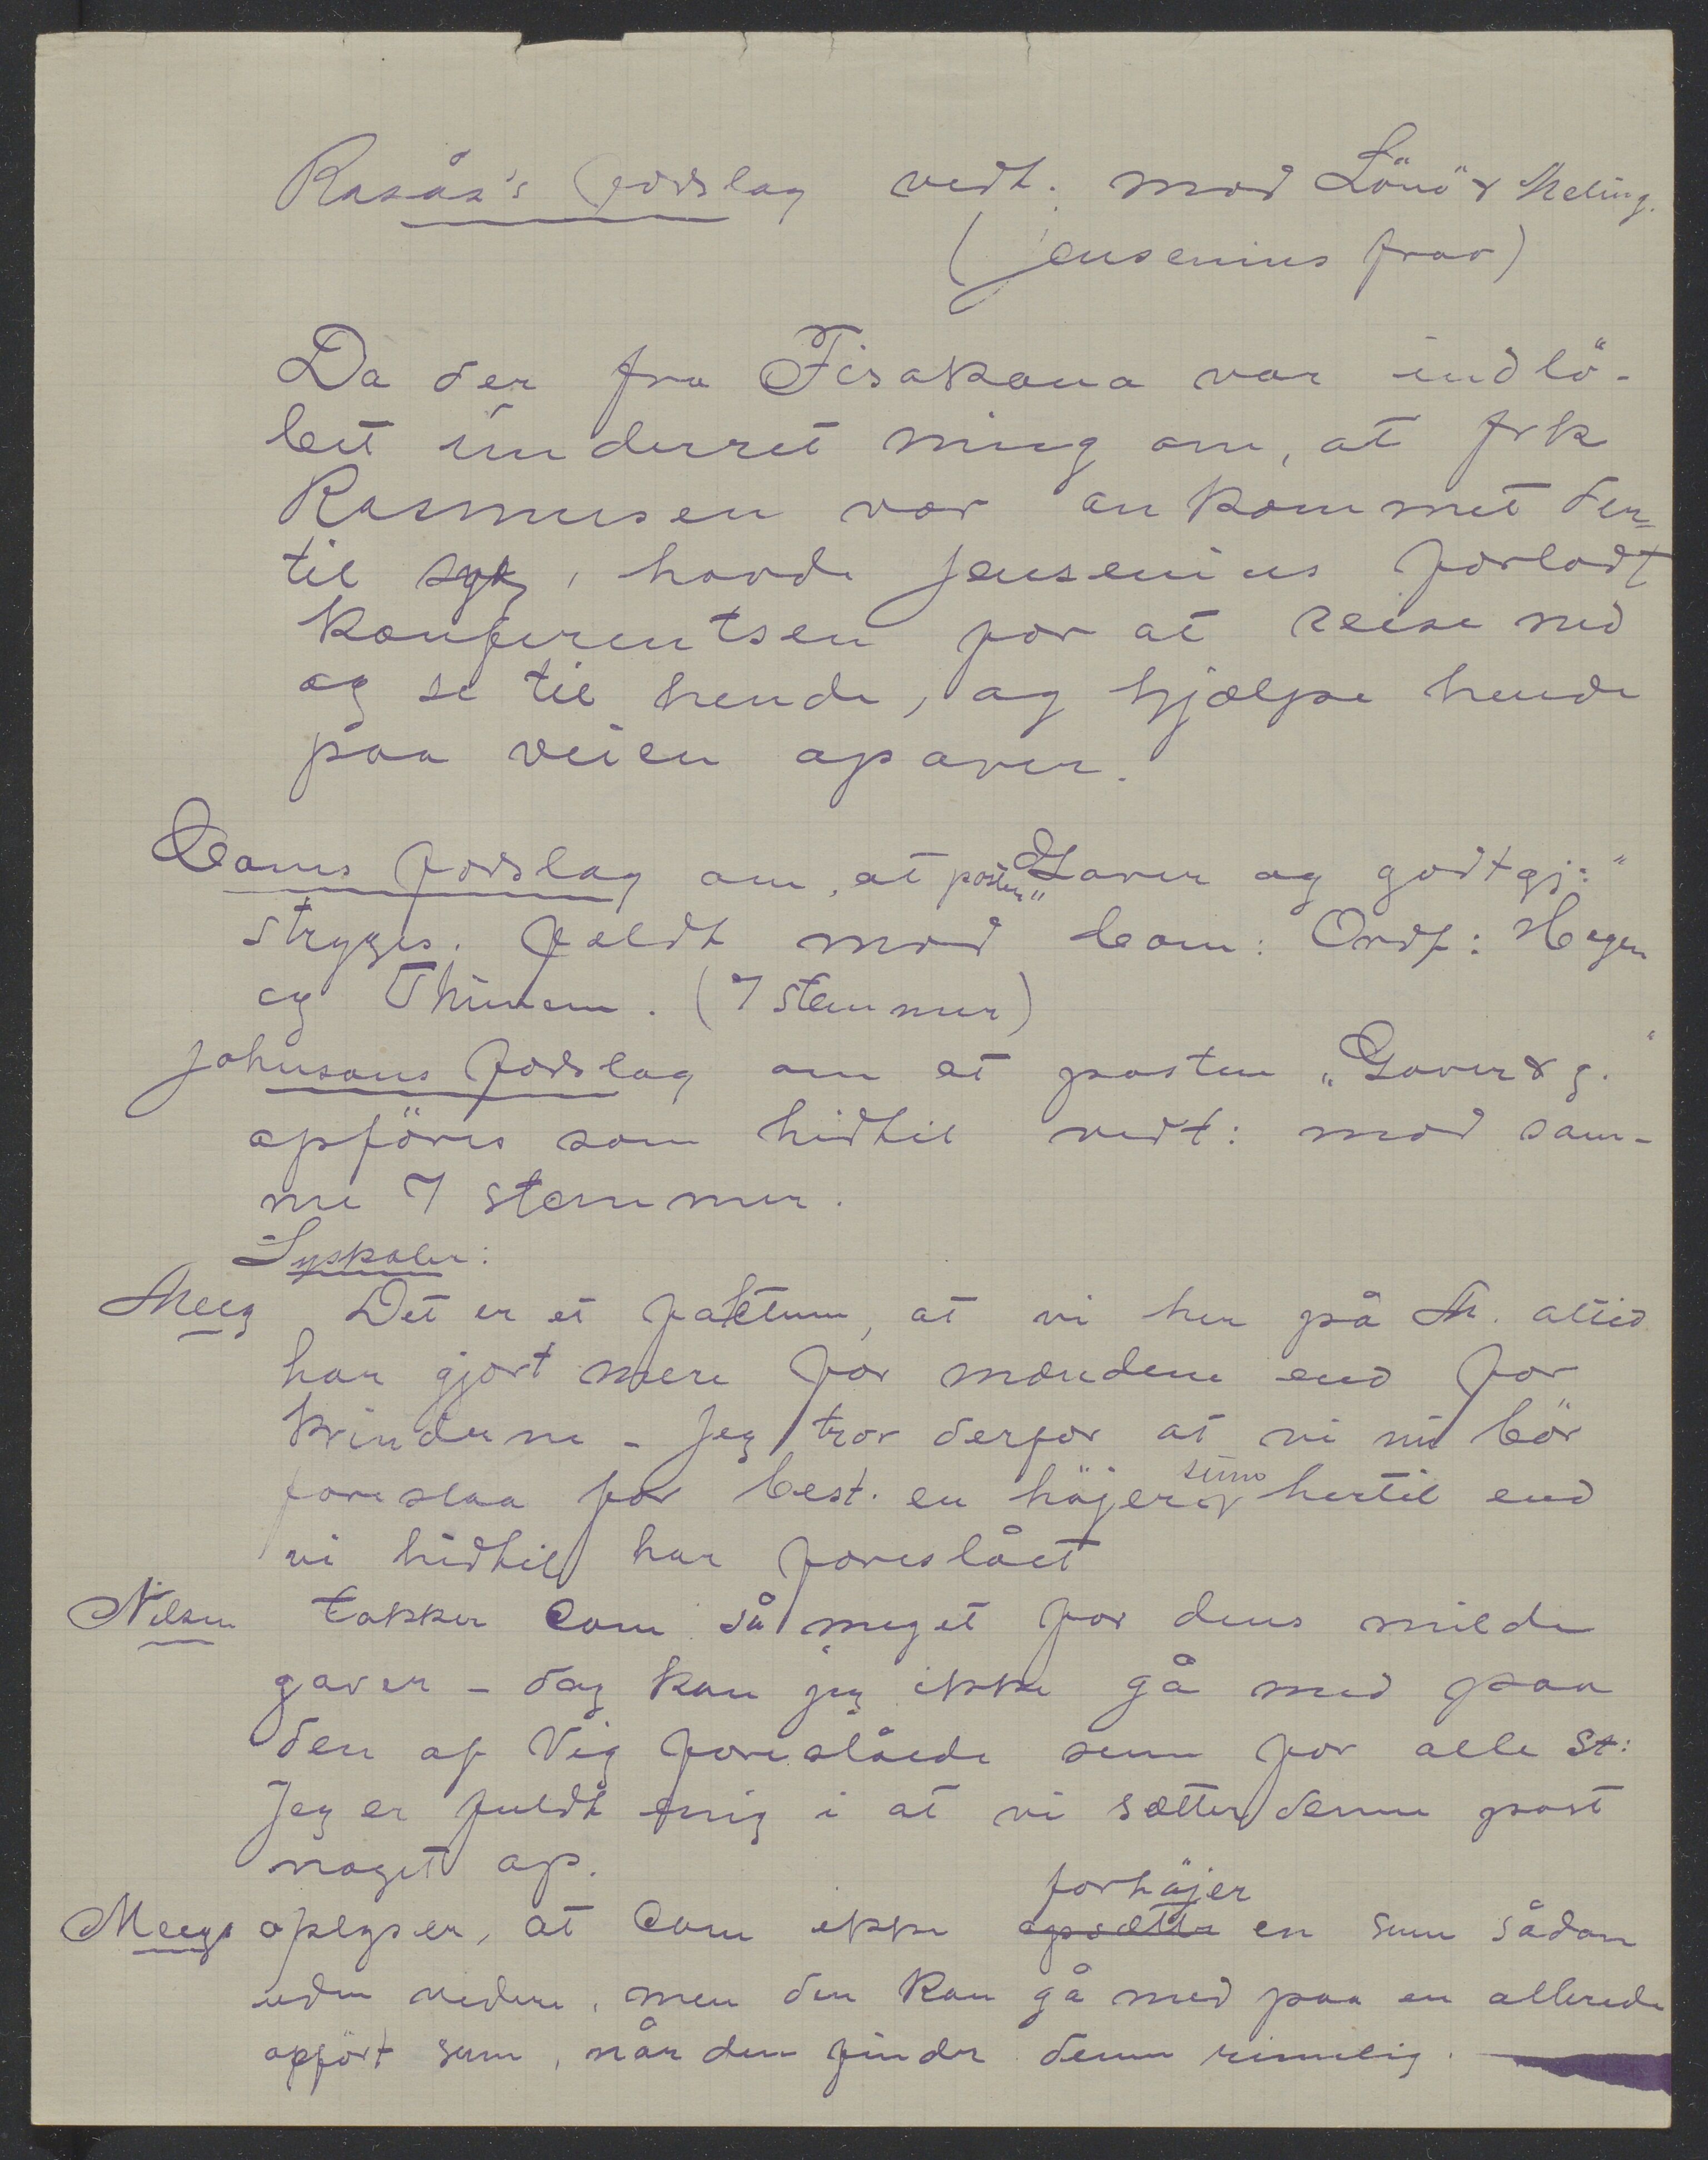 Rasås's forslag vedt. mod Lönö & Meling.
(Jensenius frav)
Da der fra Fisakana var indlö-
bet underret ning om, at frk
Rasmusen var ankommet der-
til syk, havde Jensenius forladt
konferentsen for at reise ned
og se til hende, og hjælpe hende
paa veien opover.
Coms forslag om, at posten "Gaver og godtgj:"
stryges. Faldt mod Com: Ordf: Hagen
og Thunem. (7 stemmer)
Johnsons forslag om at posten "Gaver & g."
opföres som hidtil vedt: mod sam-
me 7 stemmer.
Syskoler:
Meeg Det er et faktum, at vi her på M. altid
har gjort mere for mændene end for
kvinderne - Jeg tror derfor at vi nu bör
foreslaa for best. en höjere sum hertil end
vi hidtil har foreslået
Nilsen takker Com så meget for dens milde
gaver - dog kan jeg ikke gå med paa
den af Vig foreslåede sum for alle St:
Jeg er fuldt enig i at vi sætter denne post
noget op.
Meeg oplyser, at Com ikke opsætte forhöjer en sum sådan
uden videre, men den kan gå med paa en allerede
opfört sum, når den finder denne rimelig.